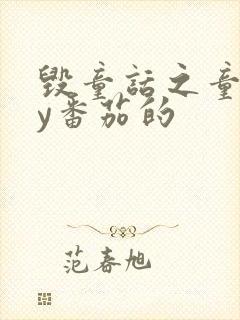 毁童话之童
y番茄的
范春旭